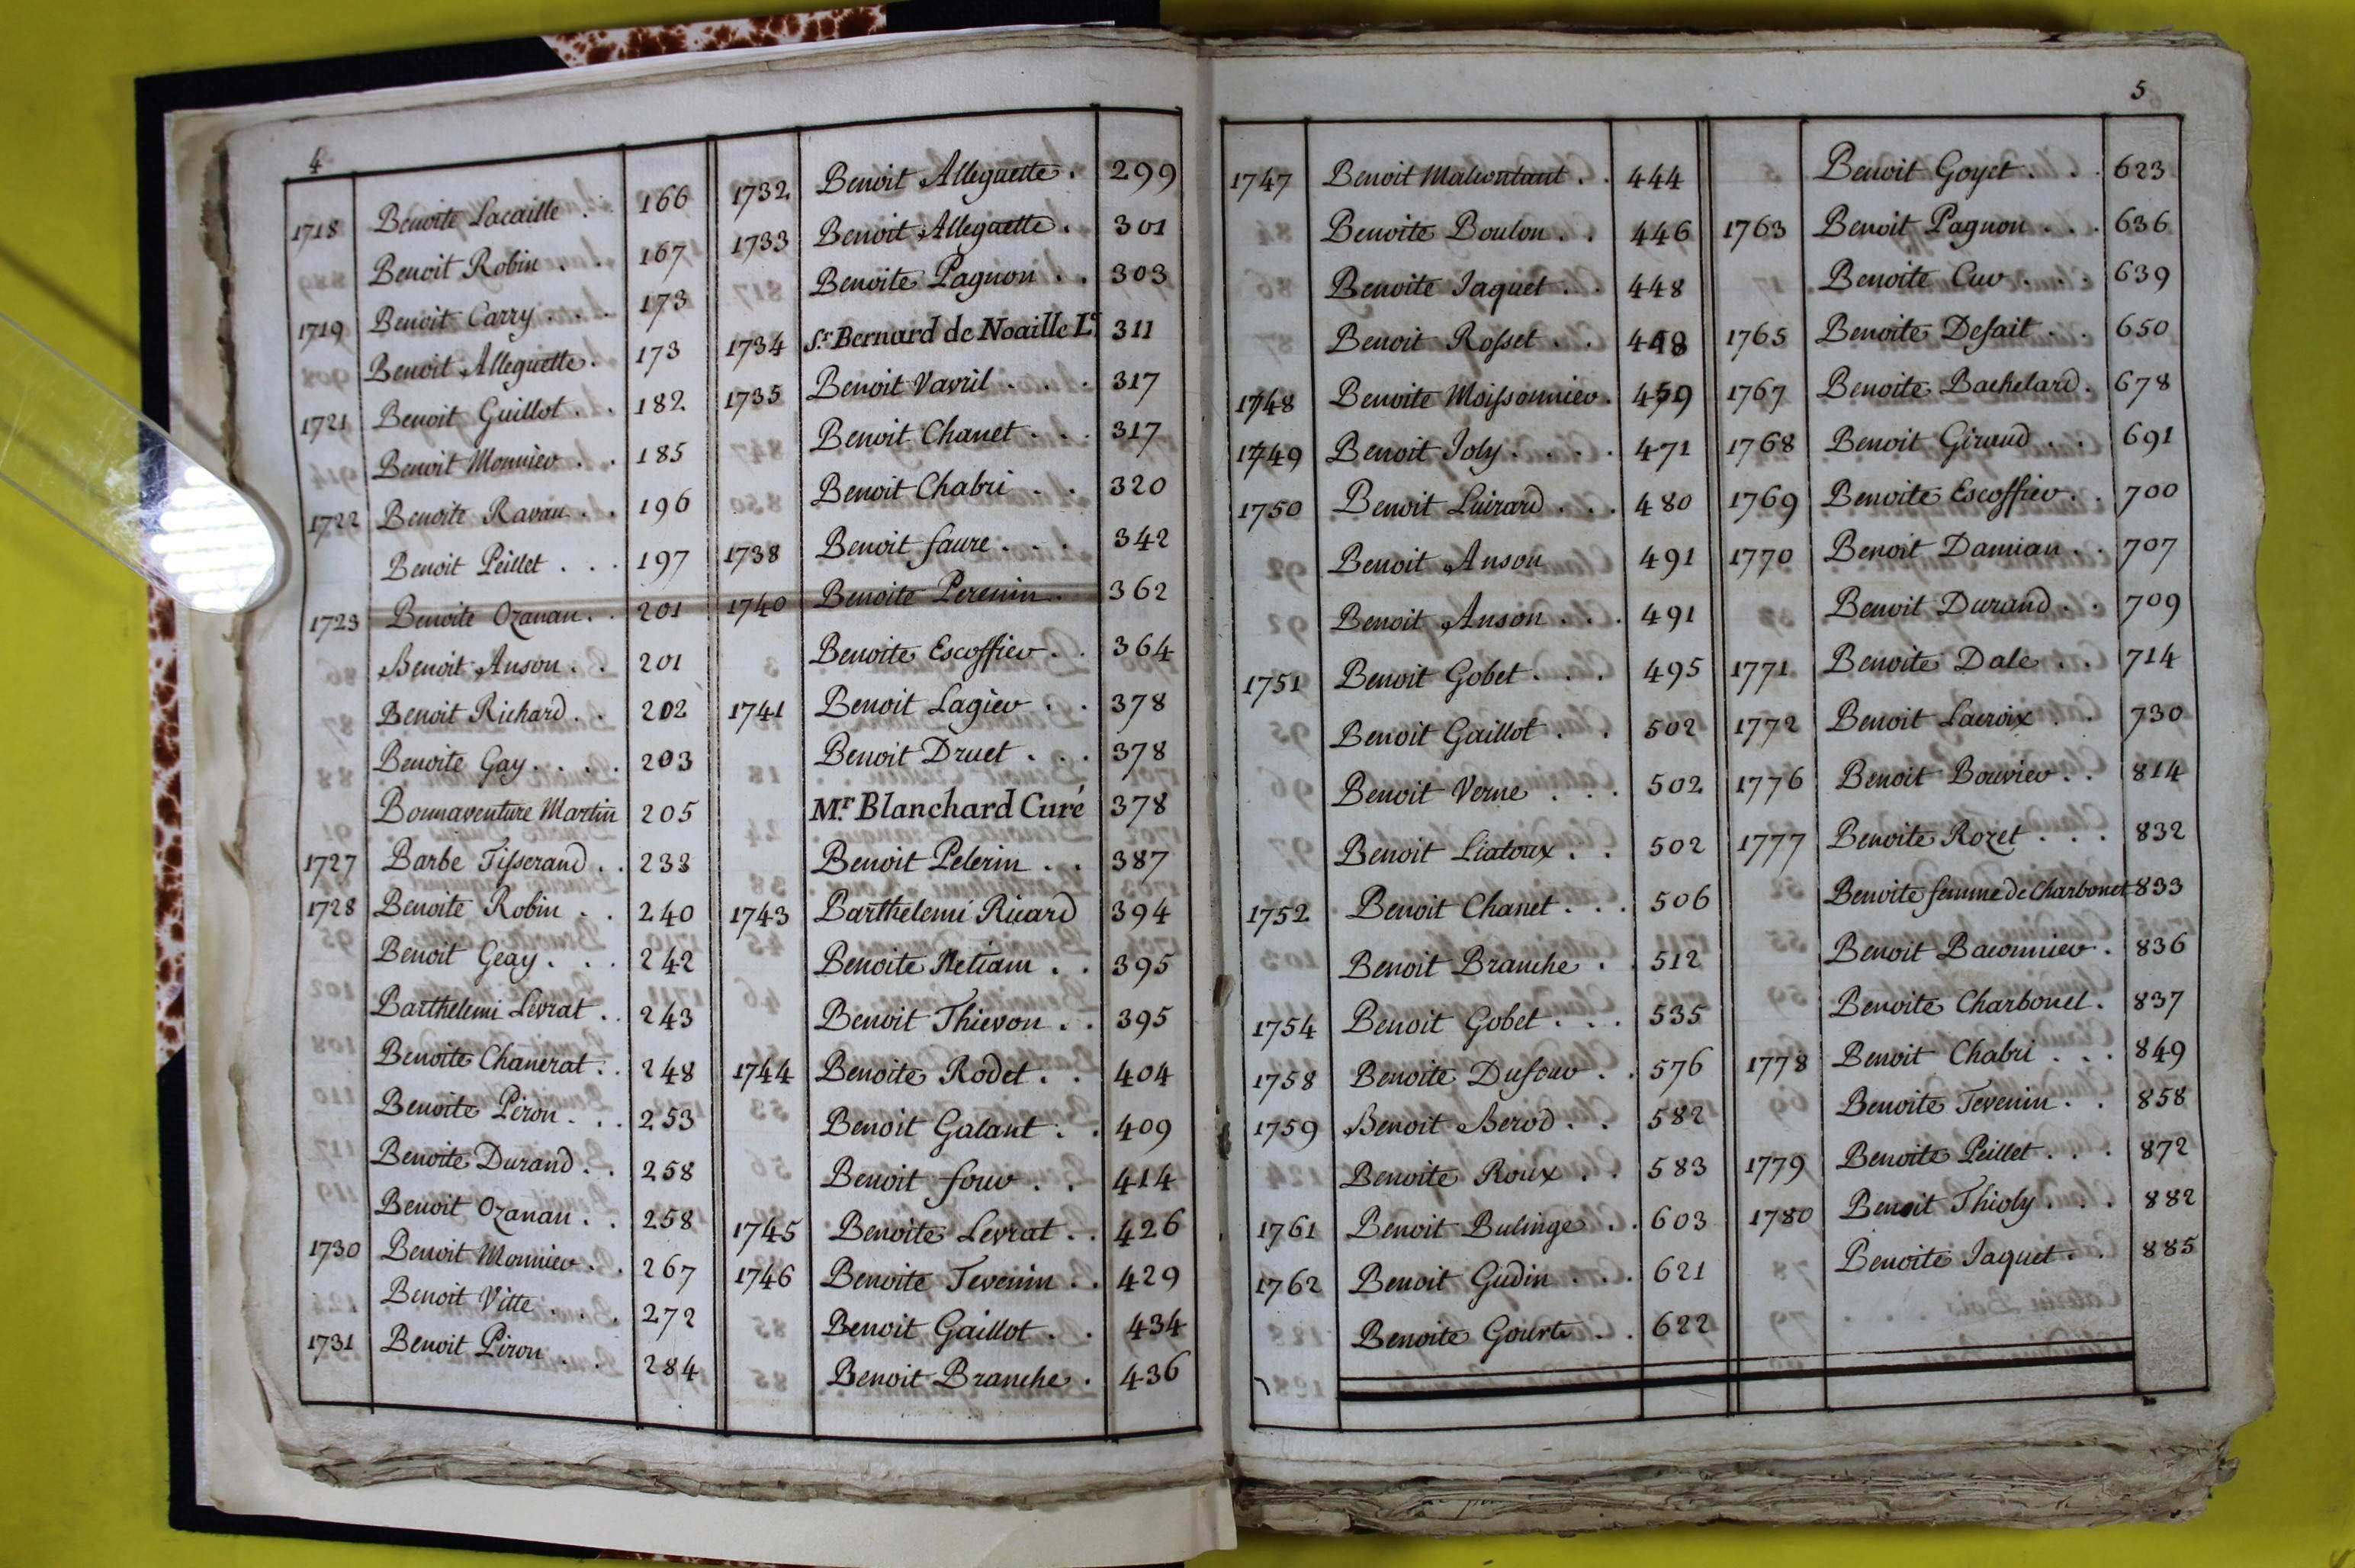 4
1718 Benoite Lacaille . 166
Benoit Robin . . 167
1719 Benoit Carry . . . 173
Benoit Alleguette . 173
1721 Benoit Guillot . . 182
Benoit Monnier . . 185
1722 Benoite Ravau . . 196
Benoit Peillet . . . 197
1723 Benoite Ozanan . . 201
Benoit Anson . . 201
Benoit Richard . . 202
Benoite Gay . . . . 203
Bonnaventure Martin 205
1727 Barbe Tisserand . . 233
1728 Benoite Robin . . 240
Benoit Geay . . . 242
Barthelemi Levrat . . 243
Benoite Chanerat . . 248
Benoite Piron . . . 253
Benoite Durand . . 258
Benoit Ozanan . . 258
1730 Benoit Monnier . . 267
Benoit Vitte . . . 272
1731 Benoit Piron . . 284
1732 Benoit Alleguette . 299
1733 Benoit Alleguette . 301
Benoite Pagnon . . 303
1734 Sr. Bernard de Noaille Lt. 311
1735 Benoit Vavril . . . 317
Benoit Chanet . . . 317
Benoit Chabri . . 320
1738 Benoit faure . . . 342
1740 Benoite Perenin . 362
Benoite Escoffier . . 364
1741 Benoit Lagier . . 378
Benoit Druet . . . 378
Mr. Blanchard Curé 378
Benoit Pelerin . . 387
1743 Barthelemi Ricard 394
Benoite Metiam . . 395
Benoit Thievon . . 395
1744 Benoite Rodet . . 404
Benoit Galant . . 409
Benoit four . . 414
1745 Benoite Levrat . . 426
1746 Benoite Tevenin . . 429
Benoit Gaillot . . 434
Benoit Branche . 436
5
1747 Benoit Malcontant . . 444
Benoite Boulon . . 446
Benoite Jaquet . . . 448
Benoit Rosset . . 448
1748 Benoite Moissonnier . 459
1749 Benoit Joly . . . . 471
1750 Benoit Luirard . . . 480
Benoit Anson 491
Benoit Anson . . . 491
1751 Benoit Gobet . . . 495
Benoit Gaillot . . 502
Benoit Verne . . . 502
Benoit Liatoux . . 502
1752 Benoit Chanet . . . 506
Benoit Branche . . 512
1754 Benoit Gobet . . . 535
1758 Benoite Dufour . . 576
1759 Benoit Berod . . 582
Benoite Roux . . 583
1761 Benoit Bulinge . . 603
1762 Benoit Gudin . . . 621
Benoite Gourte . . 622
Benoit Goyet . . . 623
1763 Benoit Pagnon . . . 636
Benoite Cuv . . . 639
1765 Benoite Defait . . 650
1767 Benoite Bachelard . 678
1768 Benoit Giraud . . 691
1769 Benoite Escoffier . . 700
1770 Benoit Damian . . 707
Benoit Durand . . 709
1771 Benoite Dale . . 714
1772 Benoit Lacroix . . 730
1776 Benoit Bouvier . . 814
1777 Benoite Rozet . . . 832
Benoite femme de Charbonet 833
Benoit Baconnier . 836
Benoite Charbonel . 837
1778 Benoit Chabri . . . 849
Benoite Tevenin . . 858
1779 Benoite Peillet . . . 872
1780 Benoit Thioly . . . 882
Benoite Jaquet . . 885